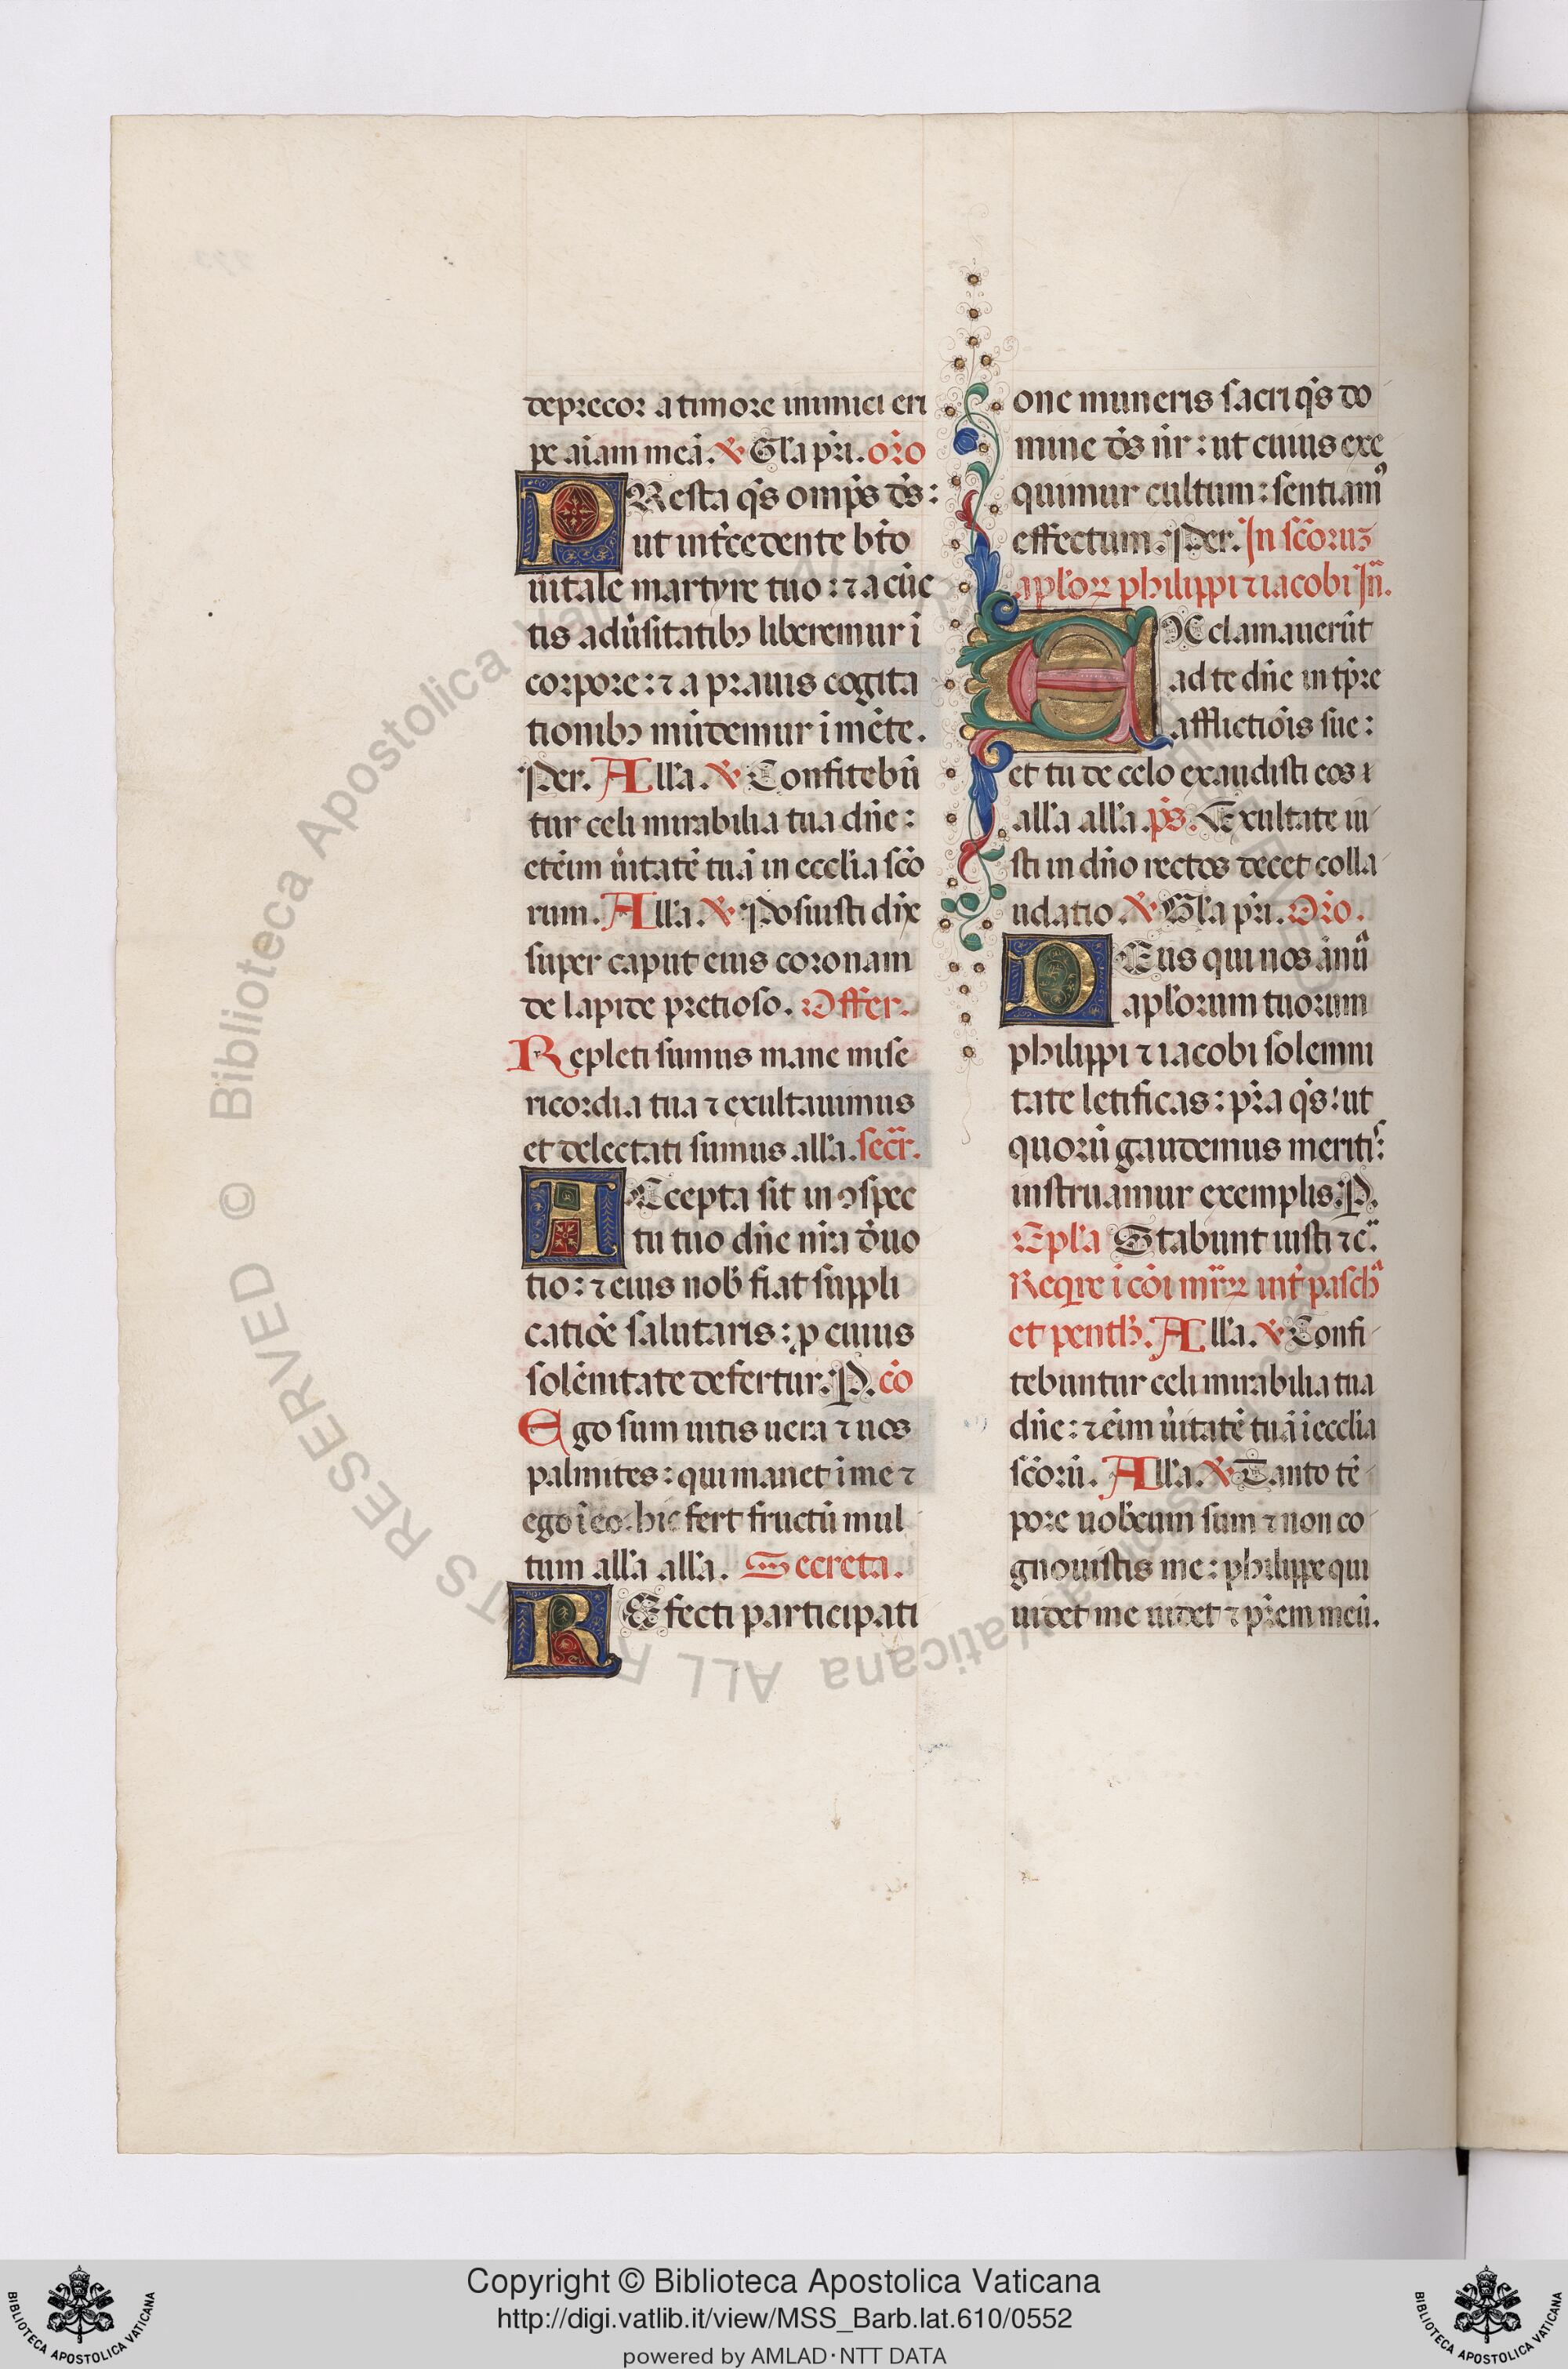 deprecor a timore inimici eri
pe aīam meā. ℣ Gl'a pr̄i. or̄o
PResta q̄s omp̄s d̄s:
ut int̄cedente bt̄o
uitale martyre tuo: ⁊ a cūc
tis adūsitatibꝫ liberemur ī
corpore: ⁊ a prauis cogita
tionibꝫ mūdemur ī mēte.
Per. All'a. ℣ Confitebū
tur celi mirabilia tua dn̄e:
etēim ūitatē tuā in eccl'ia sc̄o
rum. All'a. ℣ Posuisti dn̄e
super caput eius coronam
de lapide pretioso. Offer.
Repleti sumus mane mise
ricordia tua ⁊ exultauimus
et delectati sumus all'a. secr̄.
ACcepta sit in ꝯspec
tu tuo dn̄e nr̄a d̄uo
tio: ⁊ eius nob̄ fiat suppli
catiōe salutaris: ꝑ cuius
solēnitate defertur. P. cō
Ego sum uitis uera ⁊ uos
palmites: qui manet ī me ⁊
ego ī eo. hic fert fructū mul
tum all'a all'a. Secreta.
REfecti participati
one muneris sacri q̄s do
mine d̄s n̄r: ut cuius exe
quimur cultum: sentiamꝰ
effectum. Per. In sc̄oruꝫ
apl'oꝝ philippi ⁊ iacobi In̄.
EXclamauerūt
ad te dn̄e in tp̄re
afflictiōis sue:
et tu de celo exaudisti eos ı
all'a all'a. p̄s. Exultate iu
sti in dn̄o rectos decet colla
udatio. ℣ Gl'a pr̄i. Or̄o.
DEus qui nos ānua
apl'orum tuorum
philippi ⁊ iacobi solemni
tate letificas: pr̄a q̄s: ut
quorū gaudemus meritis:
instruamur exemplis. P.
Epl'a Stabunt iusti ⁊c̄.
Reqͥre ī cōi mr̄ꝝ int̄ pascha
et pentħ. All'a. ℣ Confi
tebuntur celi mirabilia tua
dn̄e: ⁊ēim ūitatē tuā ī eccl'ia
sc̄orū. All'a. ℣ Tanto tē
pore uob̄cum sum ⁊ non co
gnouistis me: philippe qui
uidet me uidet ⁊ pr̄em meū.
© Biblioteca Apostolica Vaticana ALL RIGHTS RESERVED
Copyright © Biblioteca Apostolica Vaticana
http://digi.vatlib.it/view/MSS_Barb.lat.610/0552
powered by AMLAD·NTT DATA
BIBLIOTECA APOSTOLICA VATICANA
BIBLIOTECA APOSTOLICA VATICANA